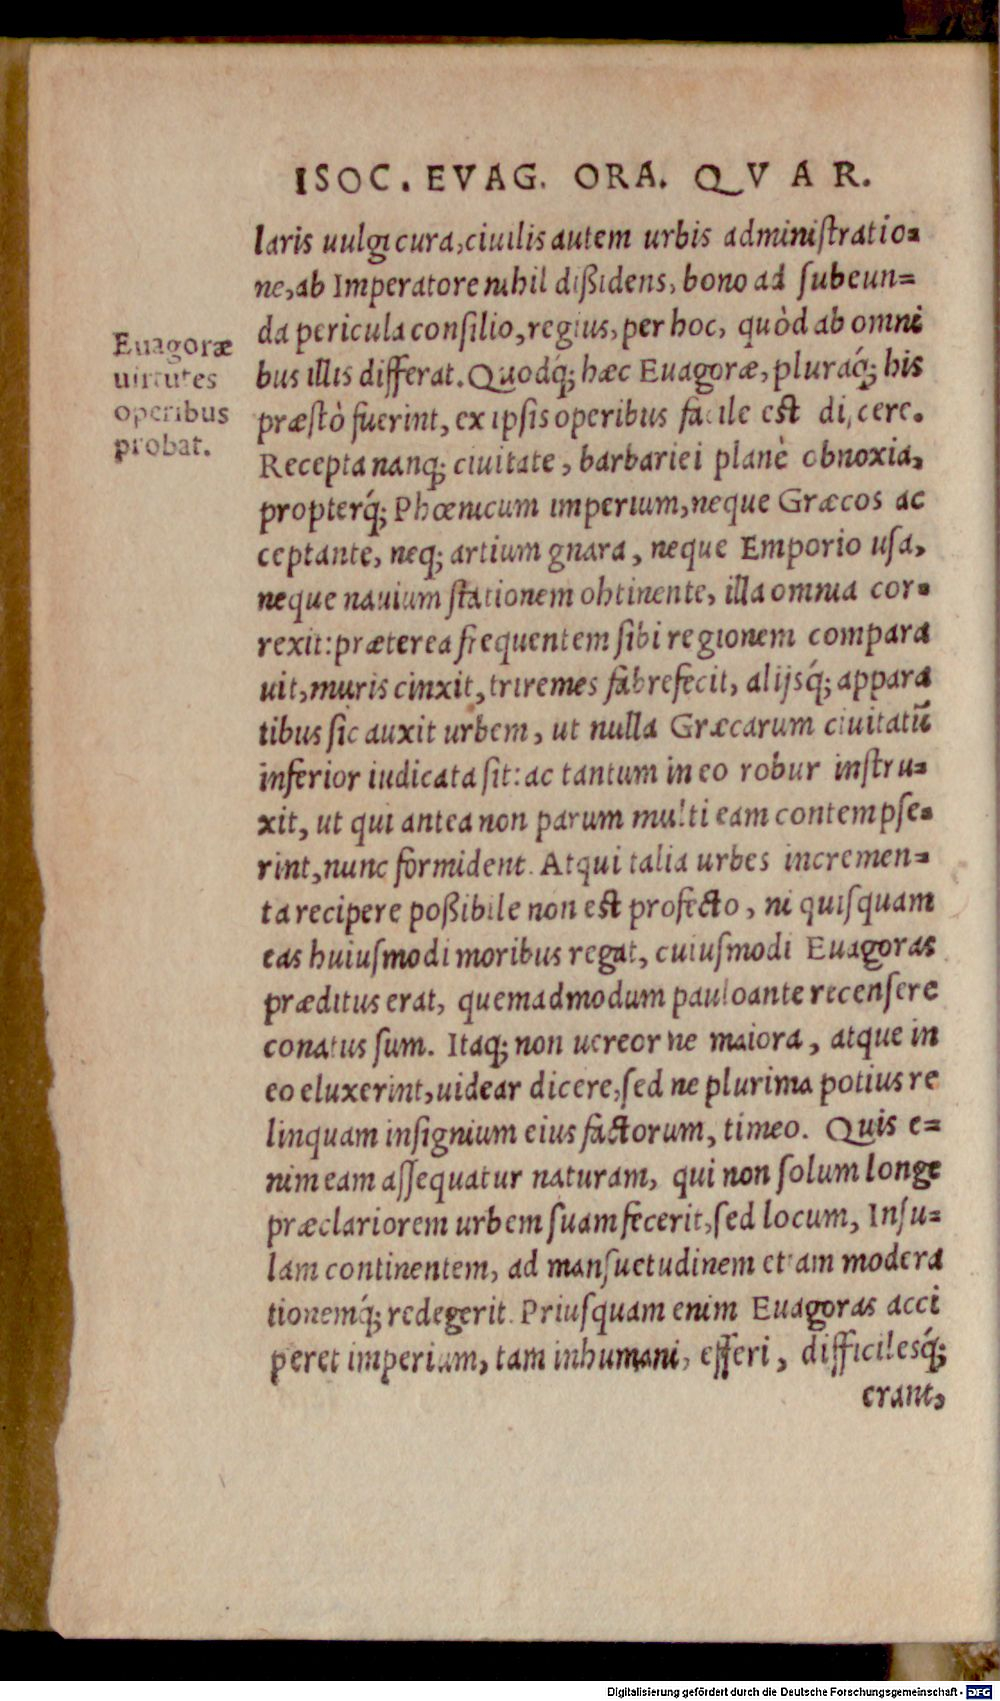 ISOC. EVAG. ORA. QVAR.
laris uulgi cura, ciuilis autem urbis administratio=
ne, ab Imperatore nihil dißidens, bono ad subeun=
da pericula consilio, regius, per hoc, quòd ab omni
bus illis differat. Quodq́; hæc Euagoræ, pluraq́; his
præstò fuerint, ex ipsis operibus facile est dicere.
Recepta nanq; ciuitate, barbariei planè obnoxia,
propterq́; Phœnicum imperium, neque Græcos ac
ceptante, neq; artium gnara, neque Emporio usa,
neque nauium stationem obtinente, illa omnia cor=
rexit: præterea frequentem sibi regionem compara
uit, muris cinxit, triremes fabrefecit, alijsq́; appara
tibus sic auxit urbem, ut nulla Græcarum ciuitatũ
inferior iudicata sit: ac tantum in eo robur instru=
xit, ut qui antea non parum multi eam contempse=
rint, nunc formident. Atqui talia urbes incremen=
ta recipere poßibile non est profecto, ni quisquam
eas huiusmodi moribus regat, cuiusmodi Euagoras
præditus erat, quemadmodum pauloante recensere
conatus sum. Itaq; non uereor ne maiora, atque in
eo eluxerint, uidear dicere, sed ne plurima potius re
linquam insignium eius factorum, timeo. Quis e=
nim eam assequatur naturam, qui non solum longe
præclariorem urbem suam fecerit, sed locum, Insu=
lam continentem, ad mansuetudinem etiam modera
tionemq́; redegerit. Priusquam enim Euagoras acci
peret imperium, tam inhumani, efferi, difficilesq́;
erant,
Euagoræ
uirtutes
operibus
probat.
Digitalisierung gefördert durch die Deutsche Forschungsgemeinschaft - DFG